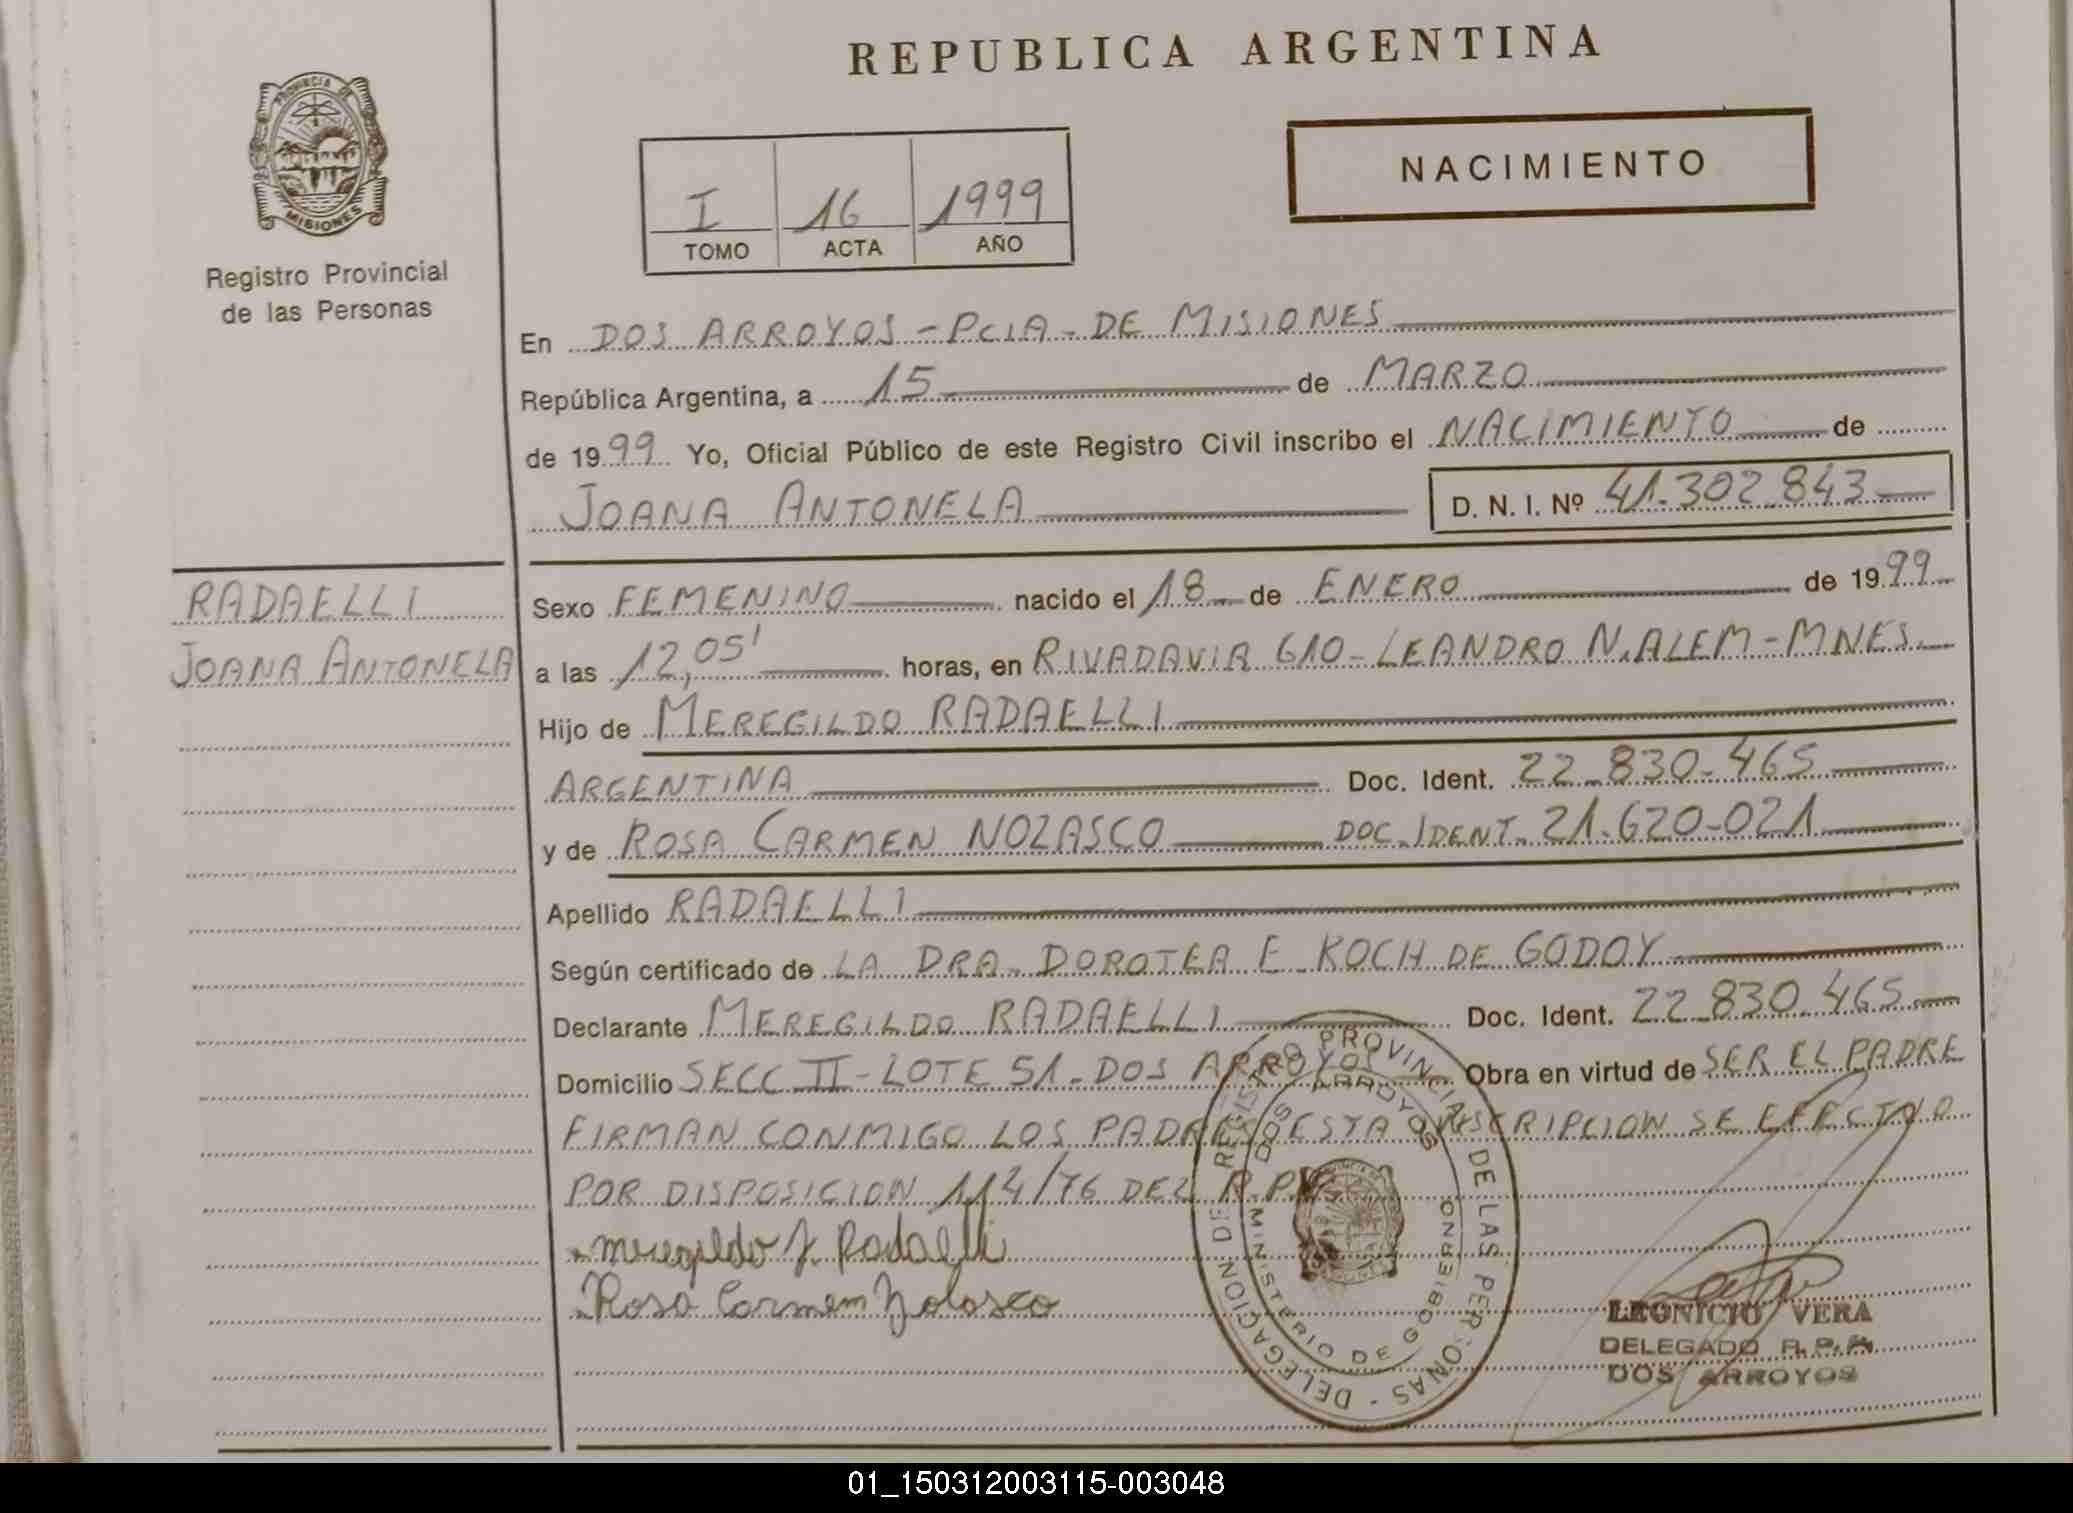 REPUBLICA ARGENTINA
PROVINCIA DE
MISIONES
Registro Provincial
de las Personas
NACIMIENTO
I 16 1999
TOMO ACTA AÑO
En DOS ARROYOS - PCIA - DE MISIONES
República Argentina, a 15 de MARZO
de 1999 Yo, Oficial Público de este Registro Civil inscribo el NACIMIENTO de
JOANA ANTONELA D. N. I. Nº 41.302.843
RADAELLI
JOANA ANTONELA
Sexo FEMENINO nacido el 18 de ENERO de 1999
a las 12,05' horas, en RIVADAVIA 610 - LEANDRO N. ALEM - MNES.
Hijo de MEREGILDO RADAELLI
ARGENTINA Doc. Ident. 22.830.465
y de ROSA CARMEN NOZASCO DOC. IDENT. 21.620.021
Apellido RADAELLI
Según certificado de LA DRA. DOROTEA E. KOCH DE GODOY
Declarante MEREGILDO RADAELLI Doc. Ident. 22.830.465
Domicilio SECC II - LOTE 51 - DOS ARROYOS Obra en virtud de SER EL PADRE
FIRMAN CONMIGO LOS PADRES ESTA INSCRIPCION SE EFECTUO
POR DISPOSICION 114/76 DEL R.P.
Meregildo J. Radaelli
Rosa Carmen Nolasco
DELEGACION DEL REGISTRO PROVINCIAL DE LAS PERSONAS
DOS ARROYOS
MINISTERIO DE GOBIERNO
LEONICIO VERA
DELEGADO R.P.P.
DOS ARROYOS
01_150312003115-003048